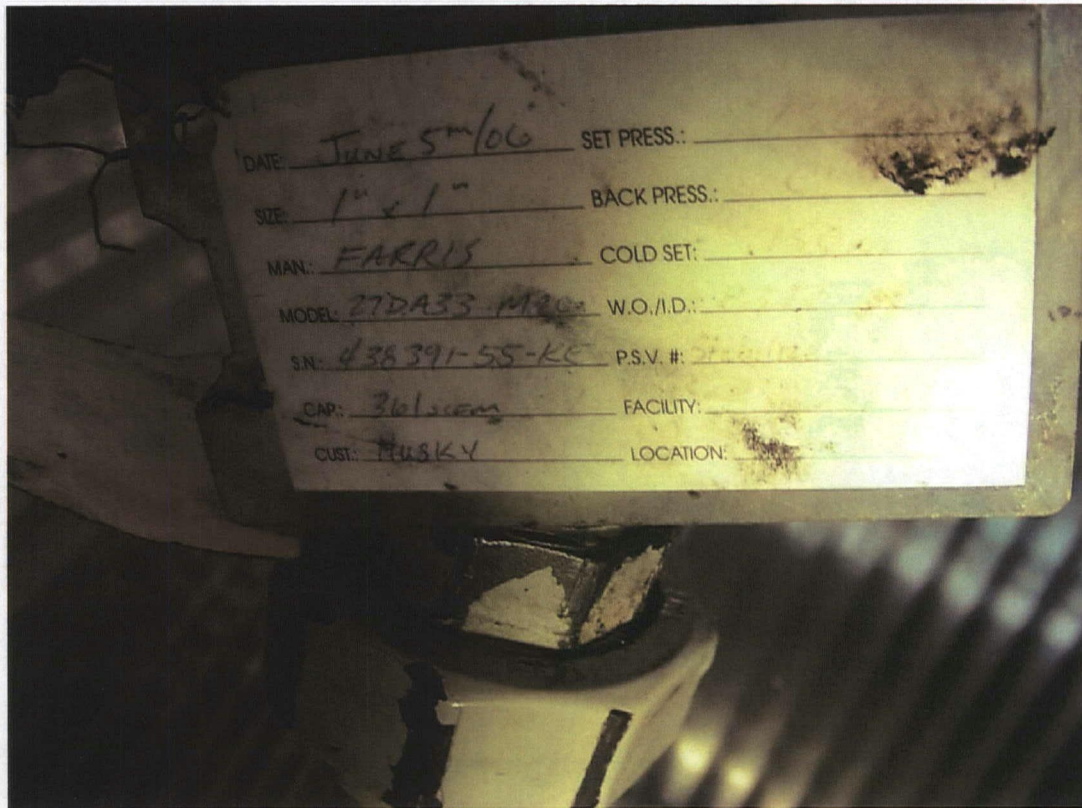 DATE: JUNE 5TH/06 SET PRESS.:
SIZE: 1" x 1" BACK PRESS.:
MAN.: FARRIS COLD SET:
MODEL: 27DA33 W.O./I.D.:
S.N.: 438391-55-KE P.S.V. #:
CAP.: 361 SCFM FACILITY:
CUST.: HUSKY LOCATION: